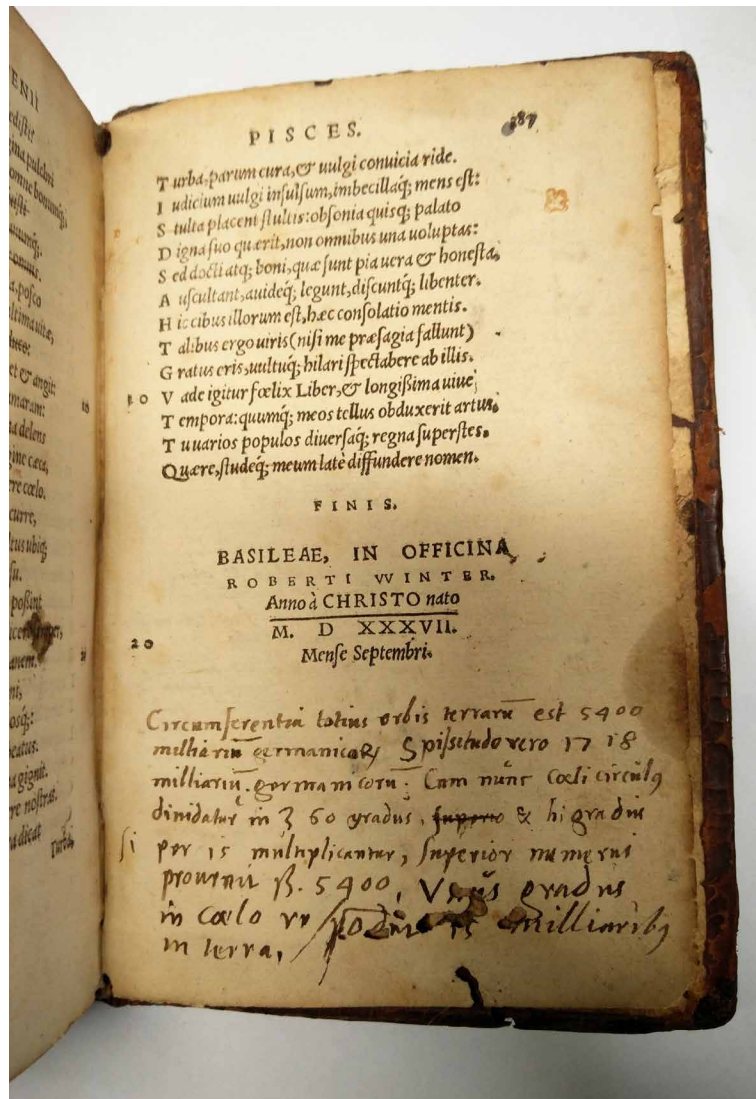 ENII
edistis
gina pulchri
omne bonumq́;
uisti
anumq́;
omnis.
a, posco
ultima uitæ,
et & angit:
maram:
10
na delens
gine cæca,
ere cœlo.
curre,
ltus ubiq́;
su.
possint
anem.
21
ni,
osq́;:
eatus.
a gignit.
re nostras.
a dicat
Turba,
PISCES.
287
Turba, parum cura, & uulgi conuicia ride.
Iudicium uulgi insulsum, imbecillaq́; mens est:
Stulta placent stultis: obsonia quisq; palato
Digna suo quærit, non omnibus una uoluptas:
Sed docti atq; boni, quæ sunt pia uera & honesta,
Auscultant, auideq́; legunt, discuntq́; libenter.
Hic cibus illorum est, hæc consolatio mentis.
Talibus ergo uiris (nisi me præsagia fallunt)
Gratus eris, uultuq́; hilari spectabere ab illis.
10 Vade igitur fœlix Liber, & longißima uiue
Tempora: quumq́; meos tellus obduxerit artus,
Tu uarios populos diuersaq́; regna superstes.
Quære, studeq́; meum latè diffundere nomen.
FINIS.
BASILEAE, IN OFFICINA
ROBERTI VVINTER.
Anno à CHRISTO nato
M. D XXXVII.
20 Mense Septembri.
Circumferentia totius orbis terrarū est 5400
milliariū germanicorum Spissitudo vero 1718
milliariū germanicorū. Cum nunc cœli circulus
diuidatur in 360 gradus, & hi gradus
si per 15 multiplicantur, superior numerus
prouenit 5400, gradus
in cœlo 15 milliaribus
in terra,